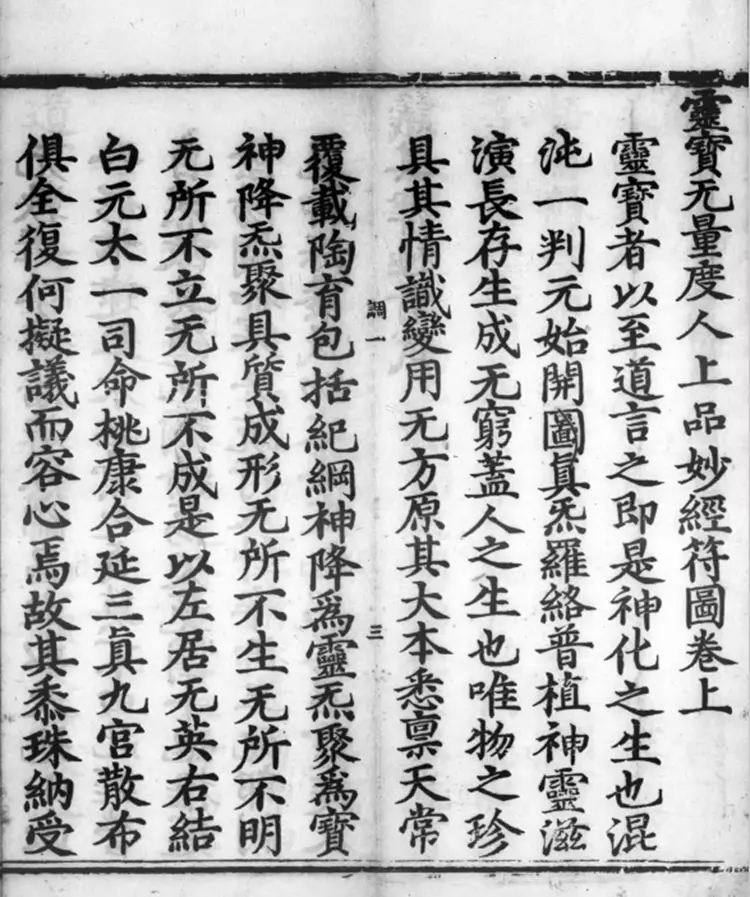 靈寶无量度人上品妙經符圖卷上
靈寶者以至道言之即是神化之生也混
沌一判元始開圖真炁羅絡普植神靈滋
演長存生成无窮蓋人之生也唯物之珍
具其情識變用无方原其大本悉稟天常
調一
三
覆載陶育包括紀綱神降為靈炁聚為寶
神降炁聚具質成形无所不生无所不明
无所不立无所不成是以左居无英右結
白元太一司命桃康合延三真九宮散布
俱全復何擬議而容心焉故其黍珠納受